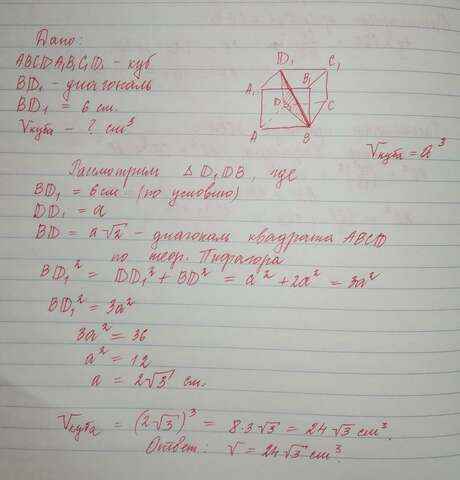 Дано:
ABCDA₁B₁C₁D₁ - куб
BD₁ - диагональ
BD₁ = 6 см.
Vкуба - ? см³
D₁ C₁
A₁ B₁
D C
A B
Vкуба = a³
Рассмотрим △ D₁DB, где
BD₁ = 6 см (по условию)
DD₁ = a
BD = a√2 - диагональ квадрата ABCD
по теор. Пифагора
BD₁² = DD₁² + BD² = a² + 2a² = 3a²
BD₁² = 3a²
3a² = 36
a² = 12
a = 2√3 см.
Vкуба = (2√3)³ = 8·3√3 = 24√3 см³.
Ответ: V = 24√3 см³.